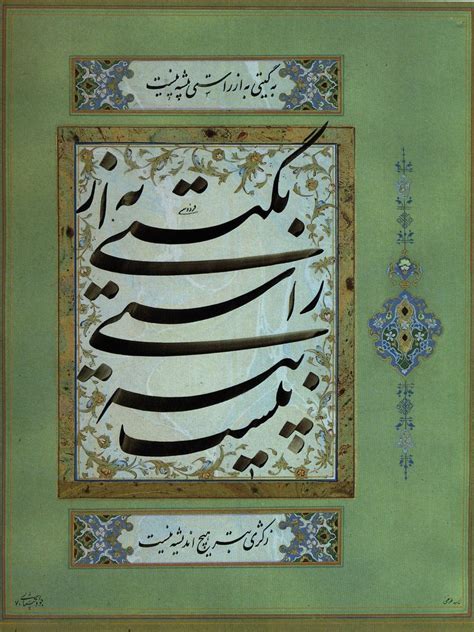 به گیتی به از راستی پیشه نیست
بگیتی به از
فردوسی
راستی
پیشه
نیست
زکژی بتر هیچ اندیشه نیست